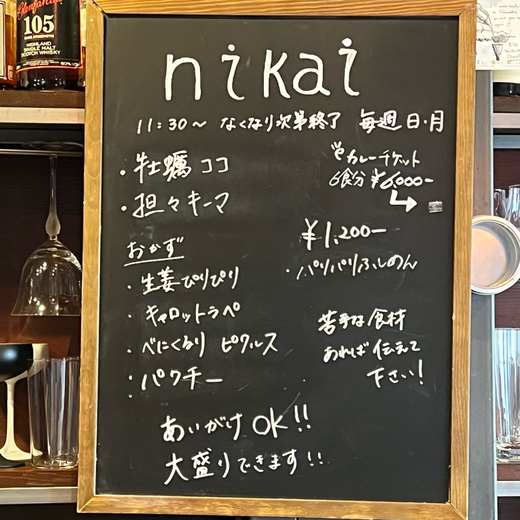 Glenfarclas
105
CASK STRENGTH
HIGHLAND
SINGLE MALT
SCOTCH WHISKY
60%
nikai
11:30〜 なくなり次第終了 毎週日・月
・牡蠣ココ
・担々キーマ
カレーチケット
6食分 ¥6,000-
おかず
・生姜ぴりぴり
・キャロットラペ
・べにくるり ピクルス
・パクチー
¥1,200-
・パリパリふしめん
苦手な食材
あれば伝えて
下さい!
あいがけOK!!
大盛りできます!!